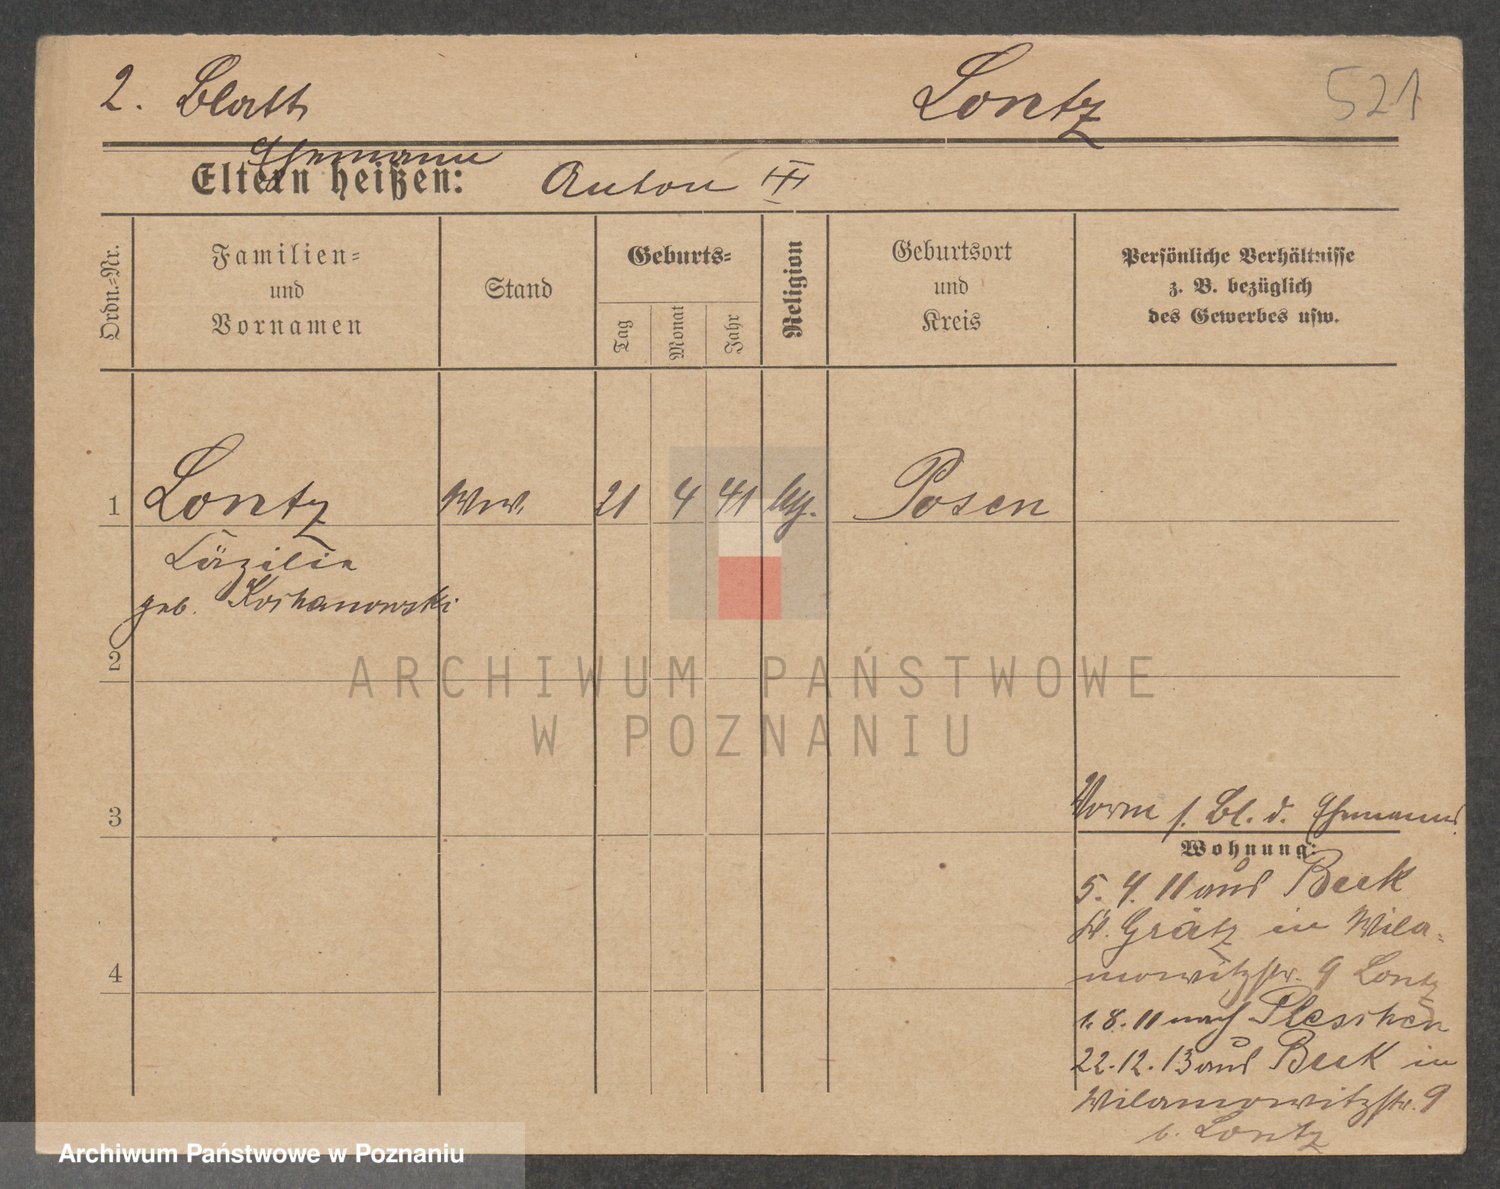 2. Blatt
Lontz
521
Ehemann
Eltern heißen: Anton III
Ordn.-Nr.
Familien-
und
Vornamen
Stand
Geburts-
Tag
Monat
Jahr
Religion
Geburtsort
und
Kreis
Persönliche Verhältnisse
z. B. bezüglich
des Gewerbes usw.
1 Lontz Ww. 21 4 41 kth. Posen
Cäzilia
geb. Koshanowski
2
3
4
Vorm s. Bl. d. Ehemanns
Wohnung:
5. 4. 11 aus Buk
Kr. Grätz in Wila-
mowitzstr. 9 Lontz
1. 8. 11 nach Pleschen
22.12.13 aus Buk in
Wilamowitzstr. 9
b. Lontz
ARCHIWUM PAŃSTWOWE
W POZNANIU
Archiwum Państwowe w Poznaniu